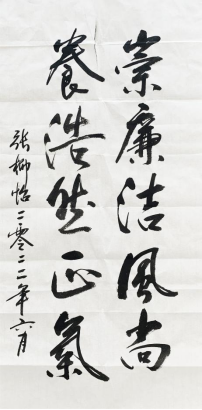 崇廉洁風尚
養浩然正氣
张柳怡二零二二年六月